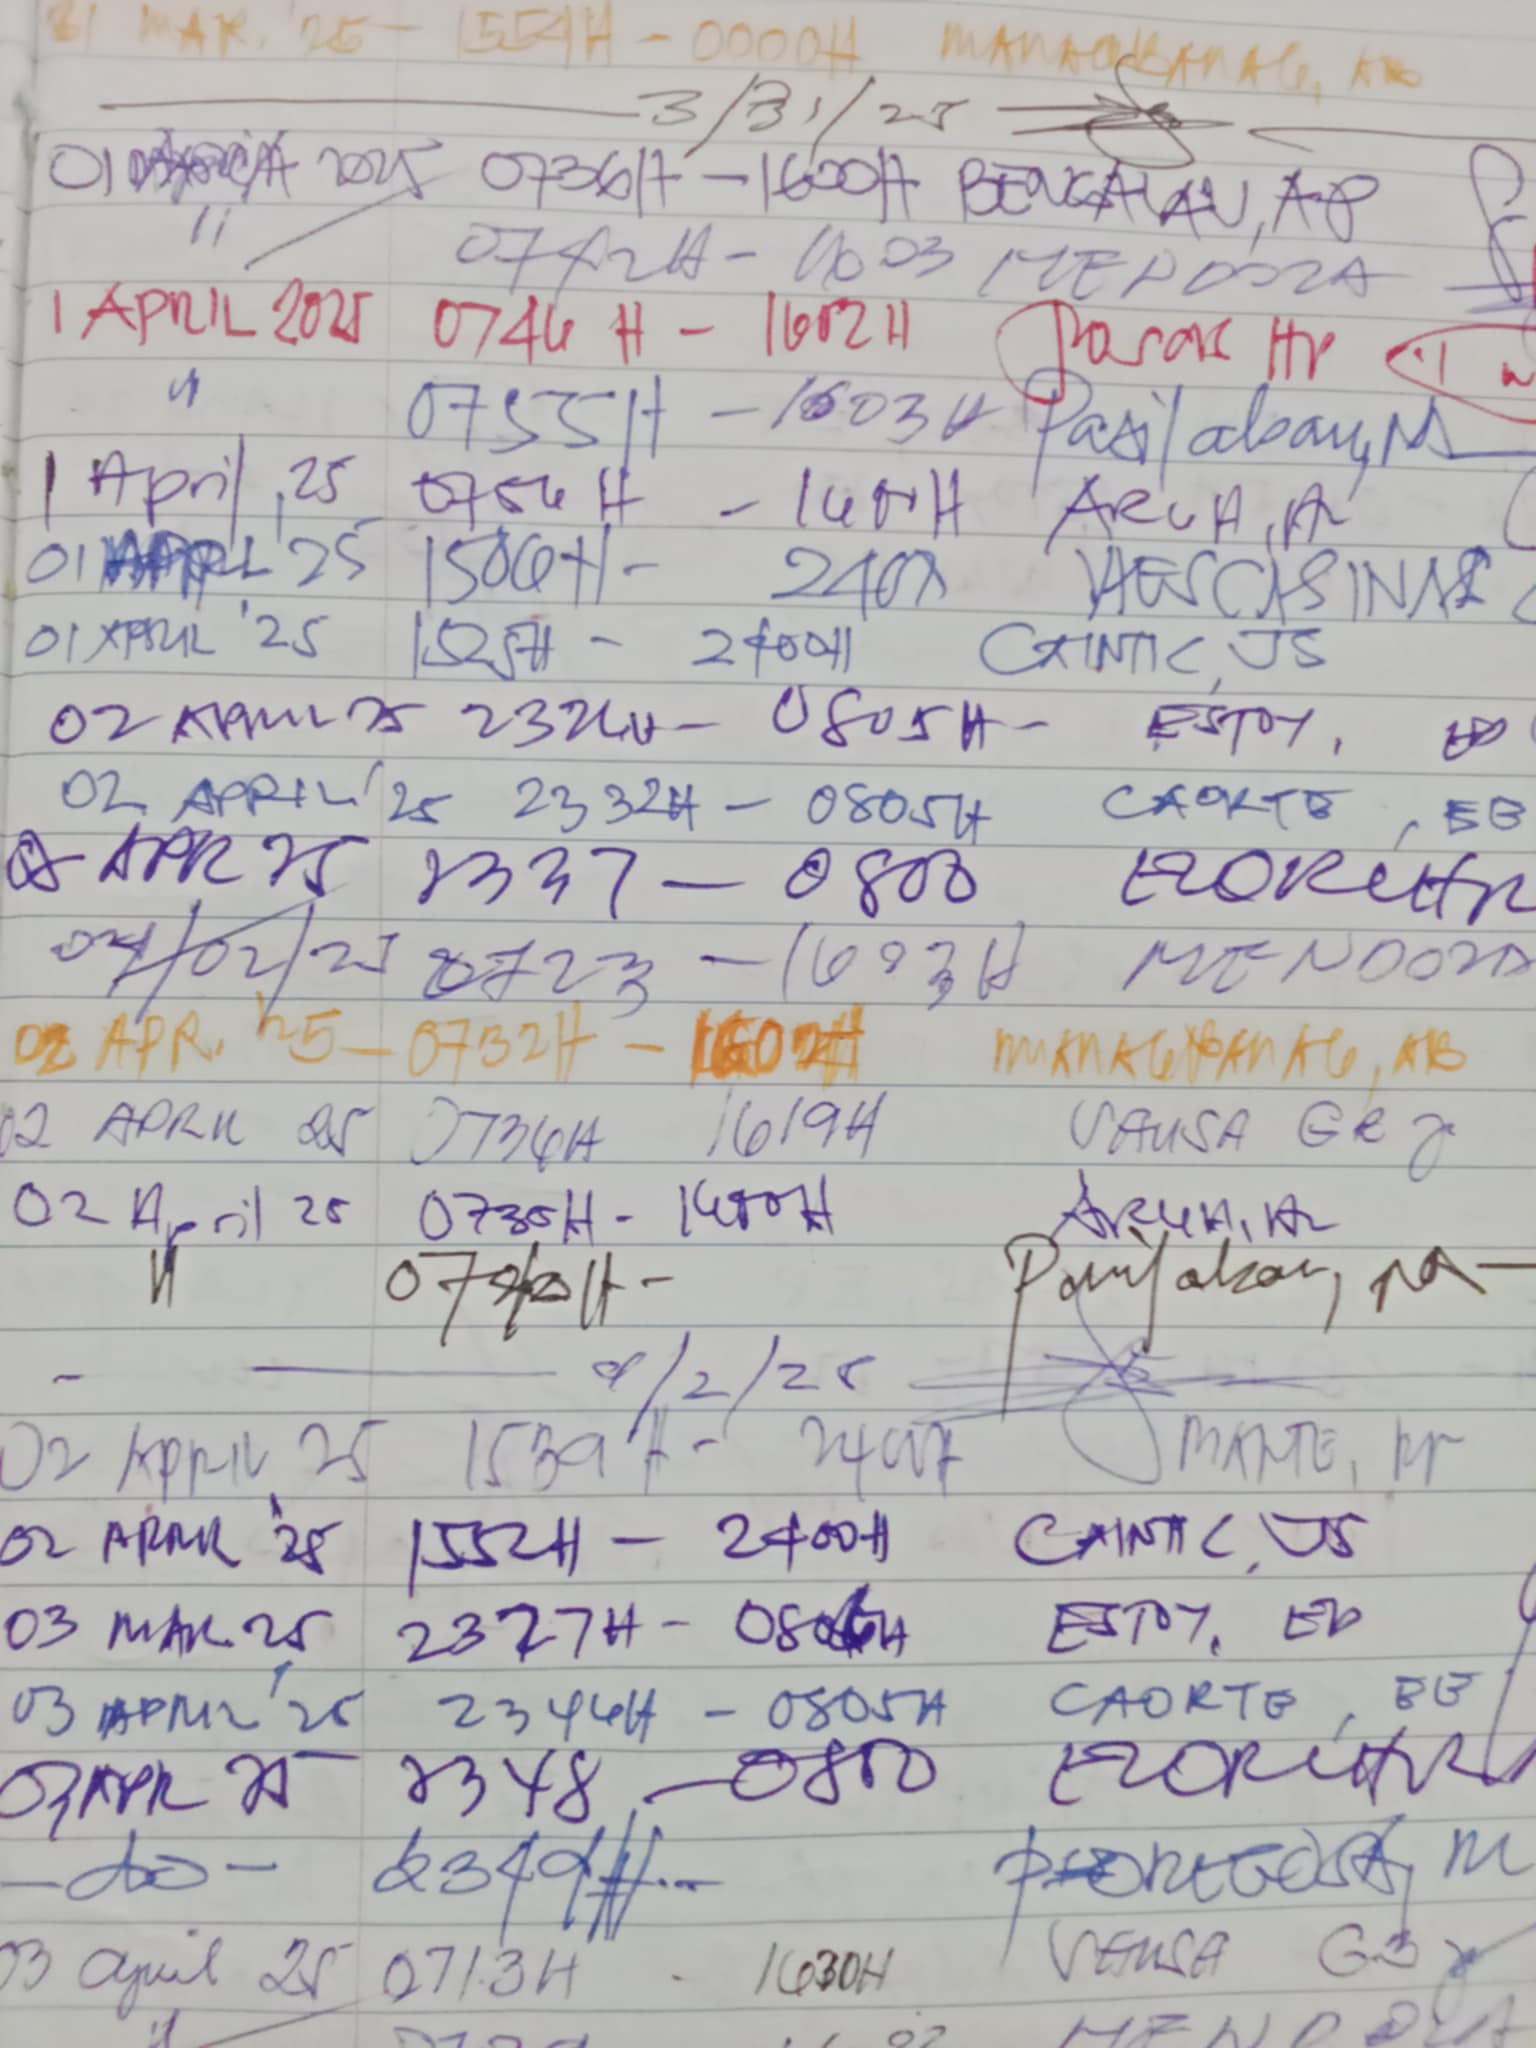 31 MAR. '25 - 1554H - 0000H MANAGBANAG, AB
3/31/25
01 2025 0736H - 1600H BENGALAN, AP
" 0742H - 1603 MENDOZA
1 APRIL 2025 0746H - 1602H
" 0755H - 1603H Pasilaban, MA
1 April, 25 0756H - 1600H ARCHA, AL
01 APRIL '25 1506H - 2400 VIESCASINAS
01 APRIL '25 1525H - 2400H CAINTIC, JS
02 APRIL 25 2326H - 0805H - ESTOY, ED
02 APRIL '25 2332H - 0805H CAORTE, EB
02 APR 25 2337 - 0800
04/02/25 0723 - 1603H MENDOZA
02 APR. '25 - 0732H - 1602H MANAGBANAG, AB
02 APRIL 25 0736H 1619H VENUSA GR
02 April 25 0730H - 1600H ARCHA, AL
" 0740H - Pasilaban, MA
- 4/2/25
02 APRIL, 25 1539H - 2400H MANTE,
02 APRIL '25 1552H - 2400H CAINTIC, JS
03 MAR. 25 2327H - 0806H ESTOY, ED
03 APRIL '25 2346H - 0805H CAORTE, EB
03 APR 25 2348 - 0800
- do - 2349H - M
03 april 25 0713H - 1630H VENUSA G
" MENDOZA